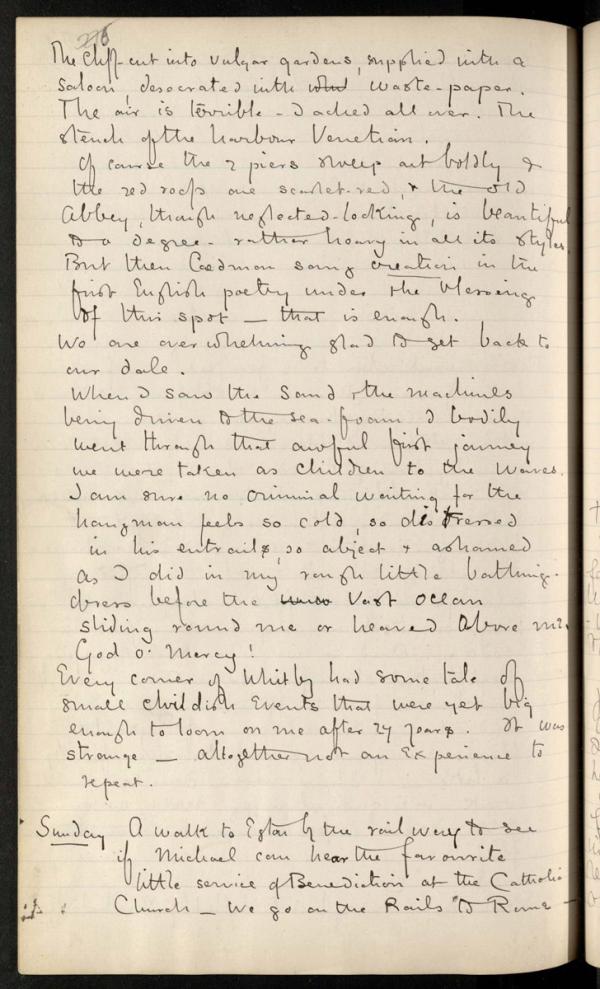 276
The cliff cut into vulgar gardens, supplied with a
saloon, desecrated with what waste-paper.
The air is terrible - I ached all over. The
stench of the harbour Venetian.
Of course the 2 piers sweep out boldly &
the red roofs are scarlet-red, & the old
Abbey, though neglected-looking, is beautiful
to a degree - rather hoary in all its styles.
But then Cædmon sang creation in the
first English poetry under the blessing
of this spot — that is enough.
We are overwhelming glad to get back to
our dale.
When I saw the sand & the machines
being driven to the sea-foam, I bodily
went through that awful first journey
we were taken as children to the waves.
I am sure no criminal waiting for the
hangman feels so cold, so distressed
in his entrails, so abject & ashamed
as I did in my rough little bathing-
dress before the vast ocean
sliding round me or heaved above me.
God o' Mercy!
Every corner of Whitby had some tale of
small childish events that were yet big
enough to loom on me after 27 years. It was
strange — altogether not an experience to
repeat.
Sunday A walk to Egton by the rail way to see
if Michael can hear the favourite
little service of Benediction at the Catholic
Church — We go on the Rails "to Rome —